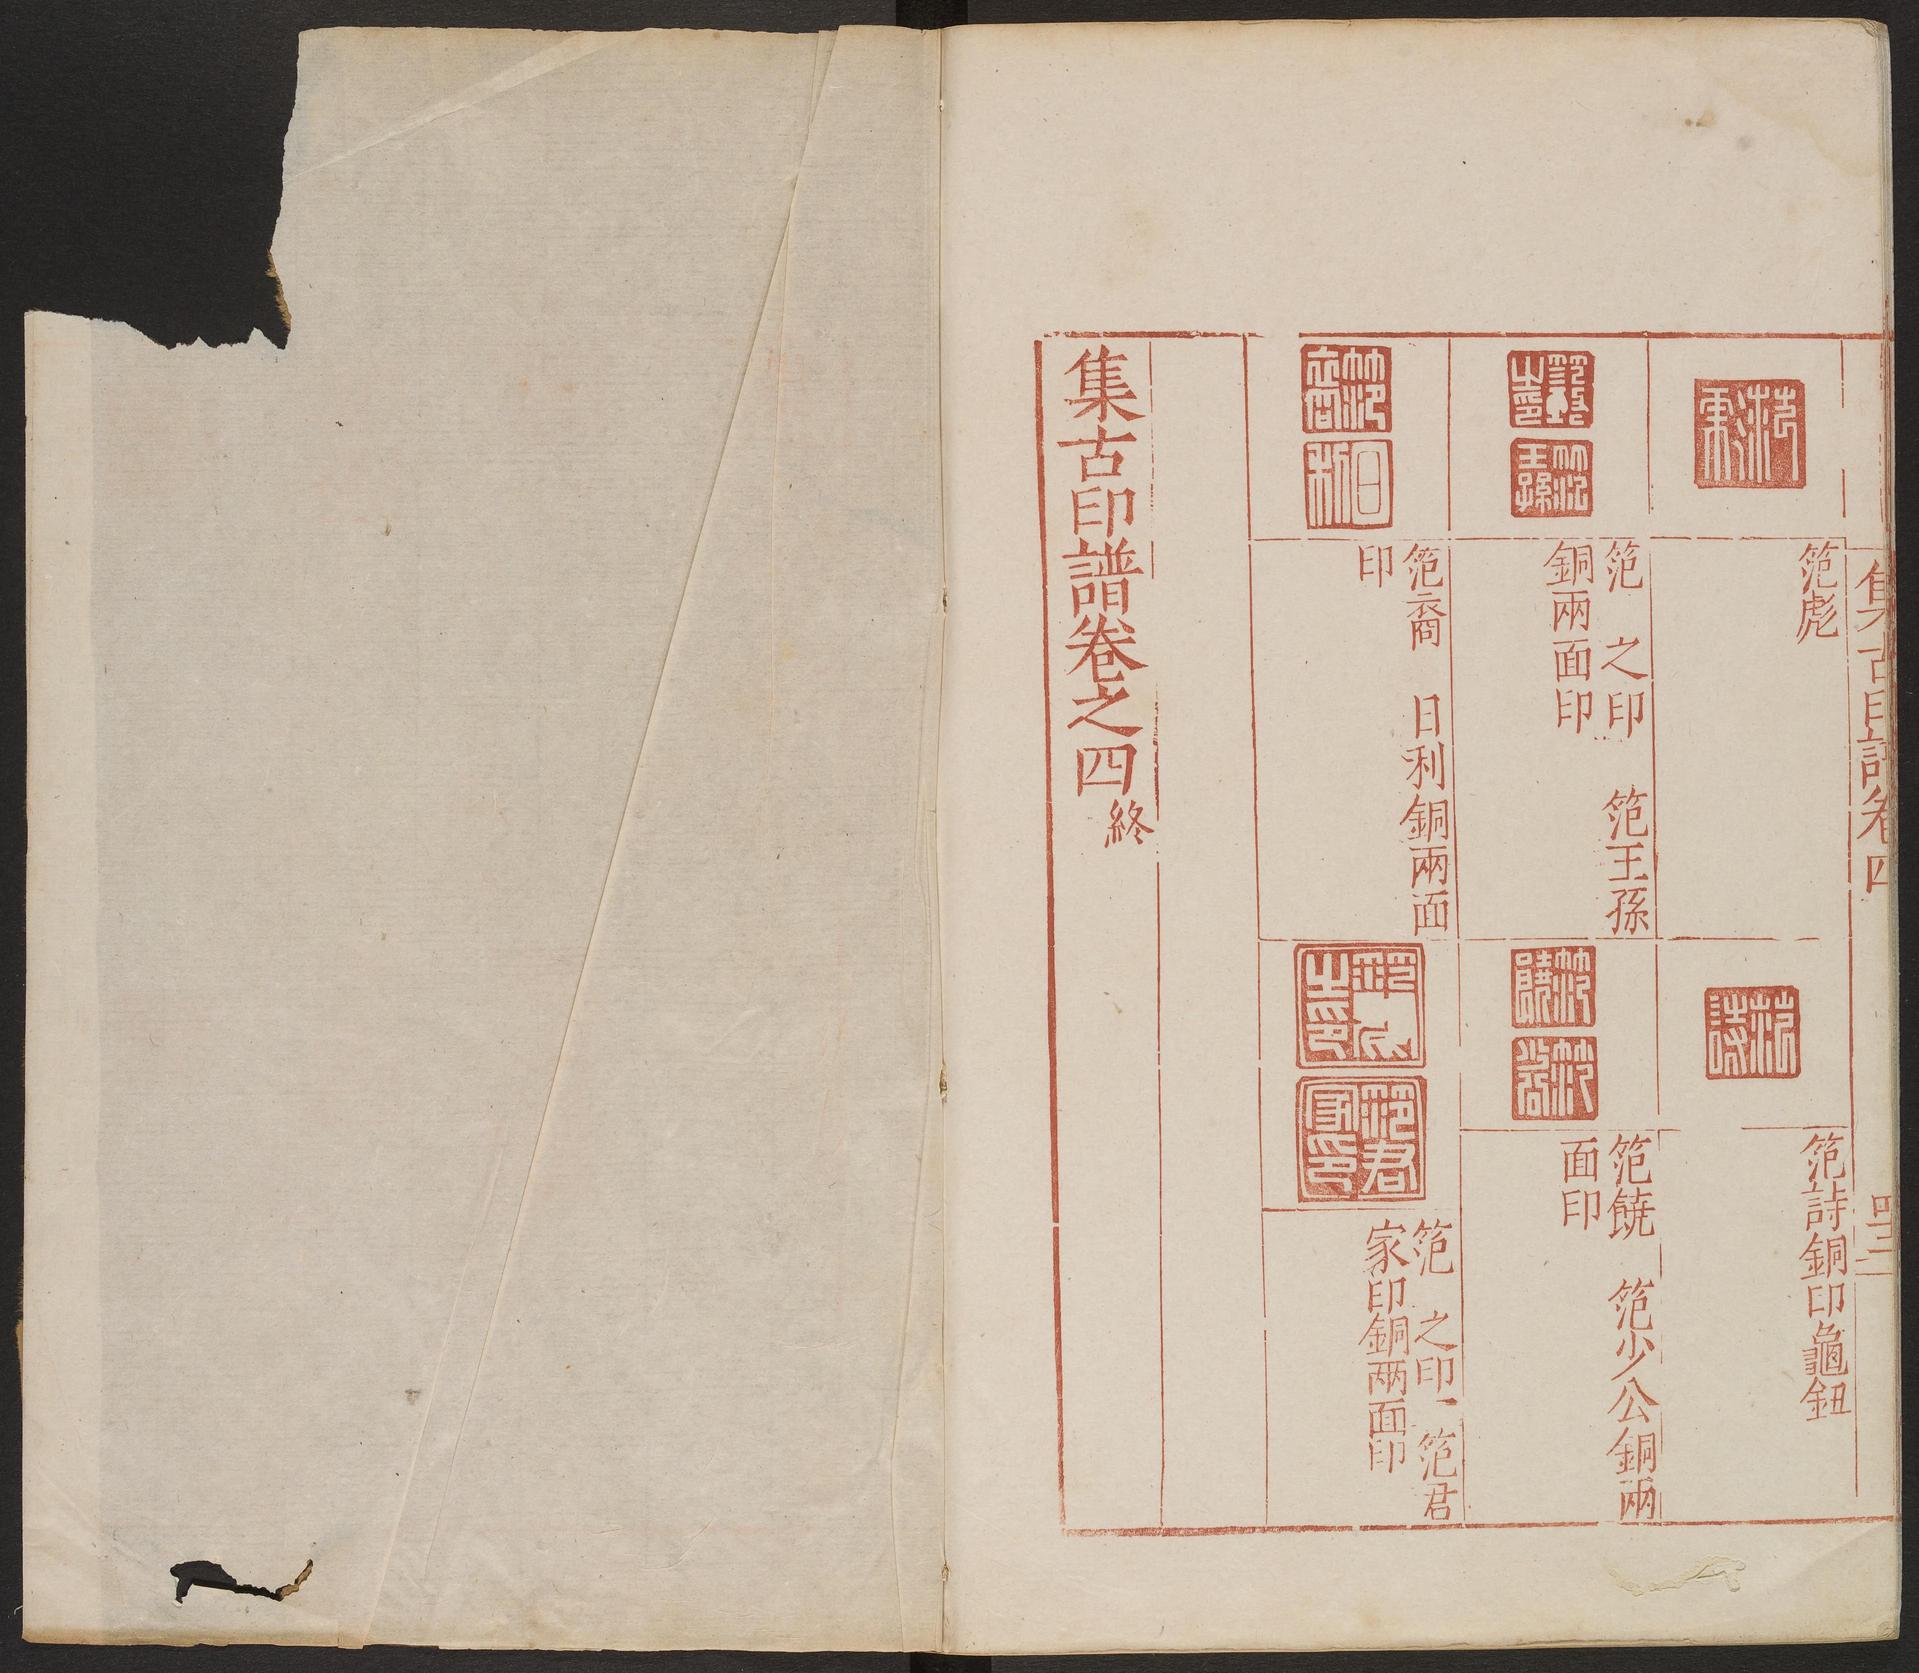 集古印譜卷四
四十二
笵彪
笵詩銅印龜鈕
笵　之印　笵王孫
銅兩面印
笵饒　笵少公銅兩
面印
笵裔　日利銅兩面
印
笵　之印一笵君
家印銅兩面印
集古印譜卷之四終